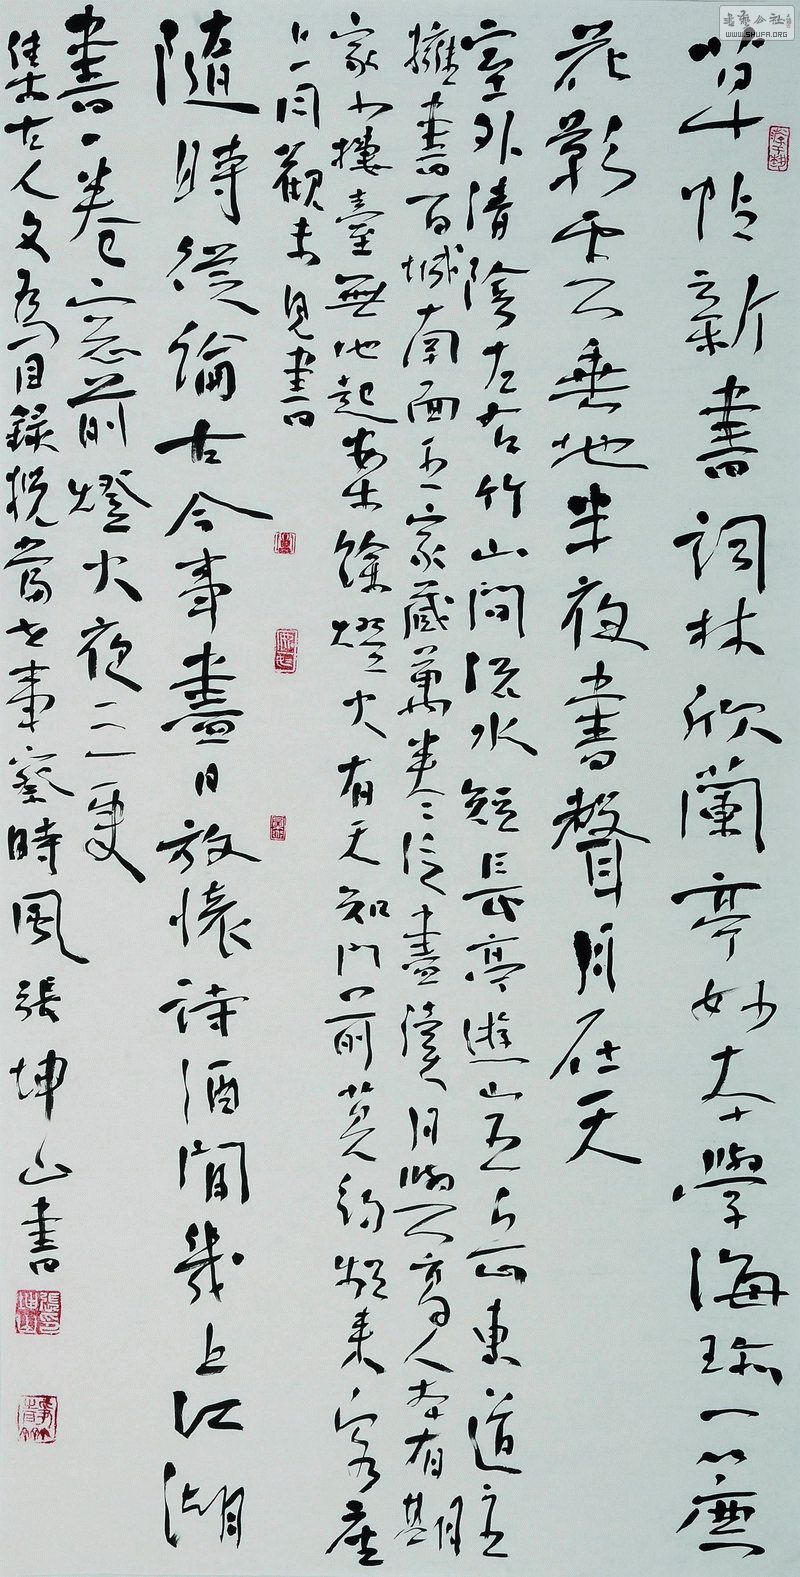 書藝公社
WWW.SHUFA.ORG
草帖新書詞林欣蘭亭妙本學海珎一簾
花影云垂地半夜書聲月在天
室外清陰左右竹山間流水短長亭遊山五岳東道主
擁書百城南面王家藏萬卷盡讀月與高人本有期
家小樓臺無地起案餘燈火有天知門前莫約頻來客座
上同觀未見書
隨時從論古今事盡日放懷詩酒間幾上江湖
書一卷窗前燈火夜三更
集古人文為目錄攬當世事察時風張坤山書